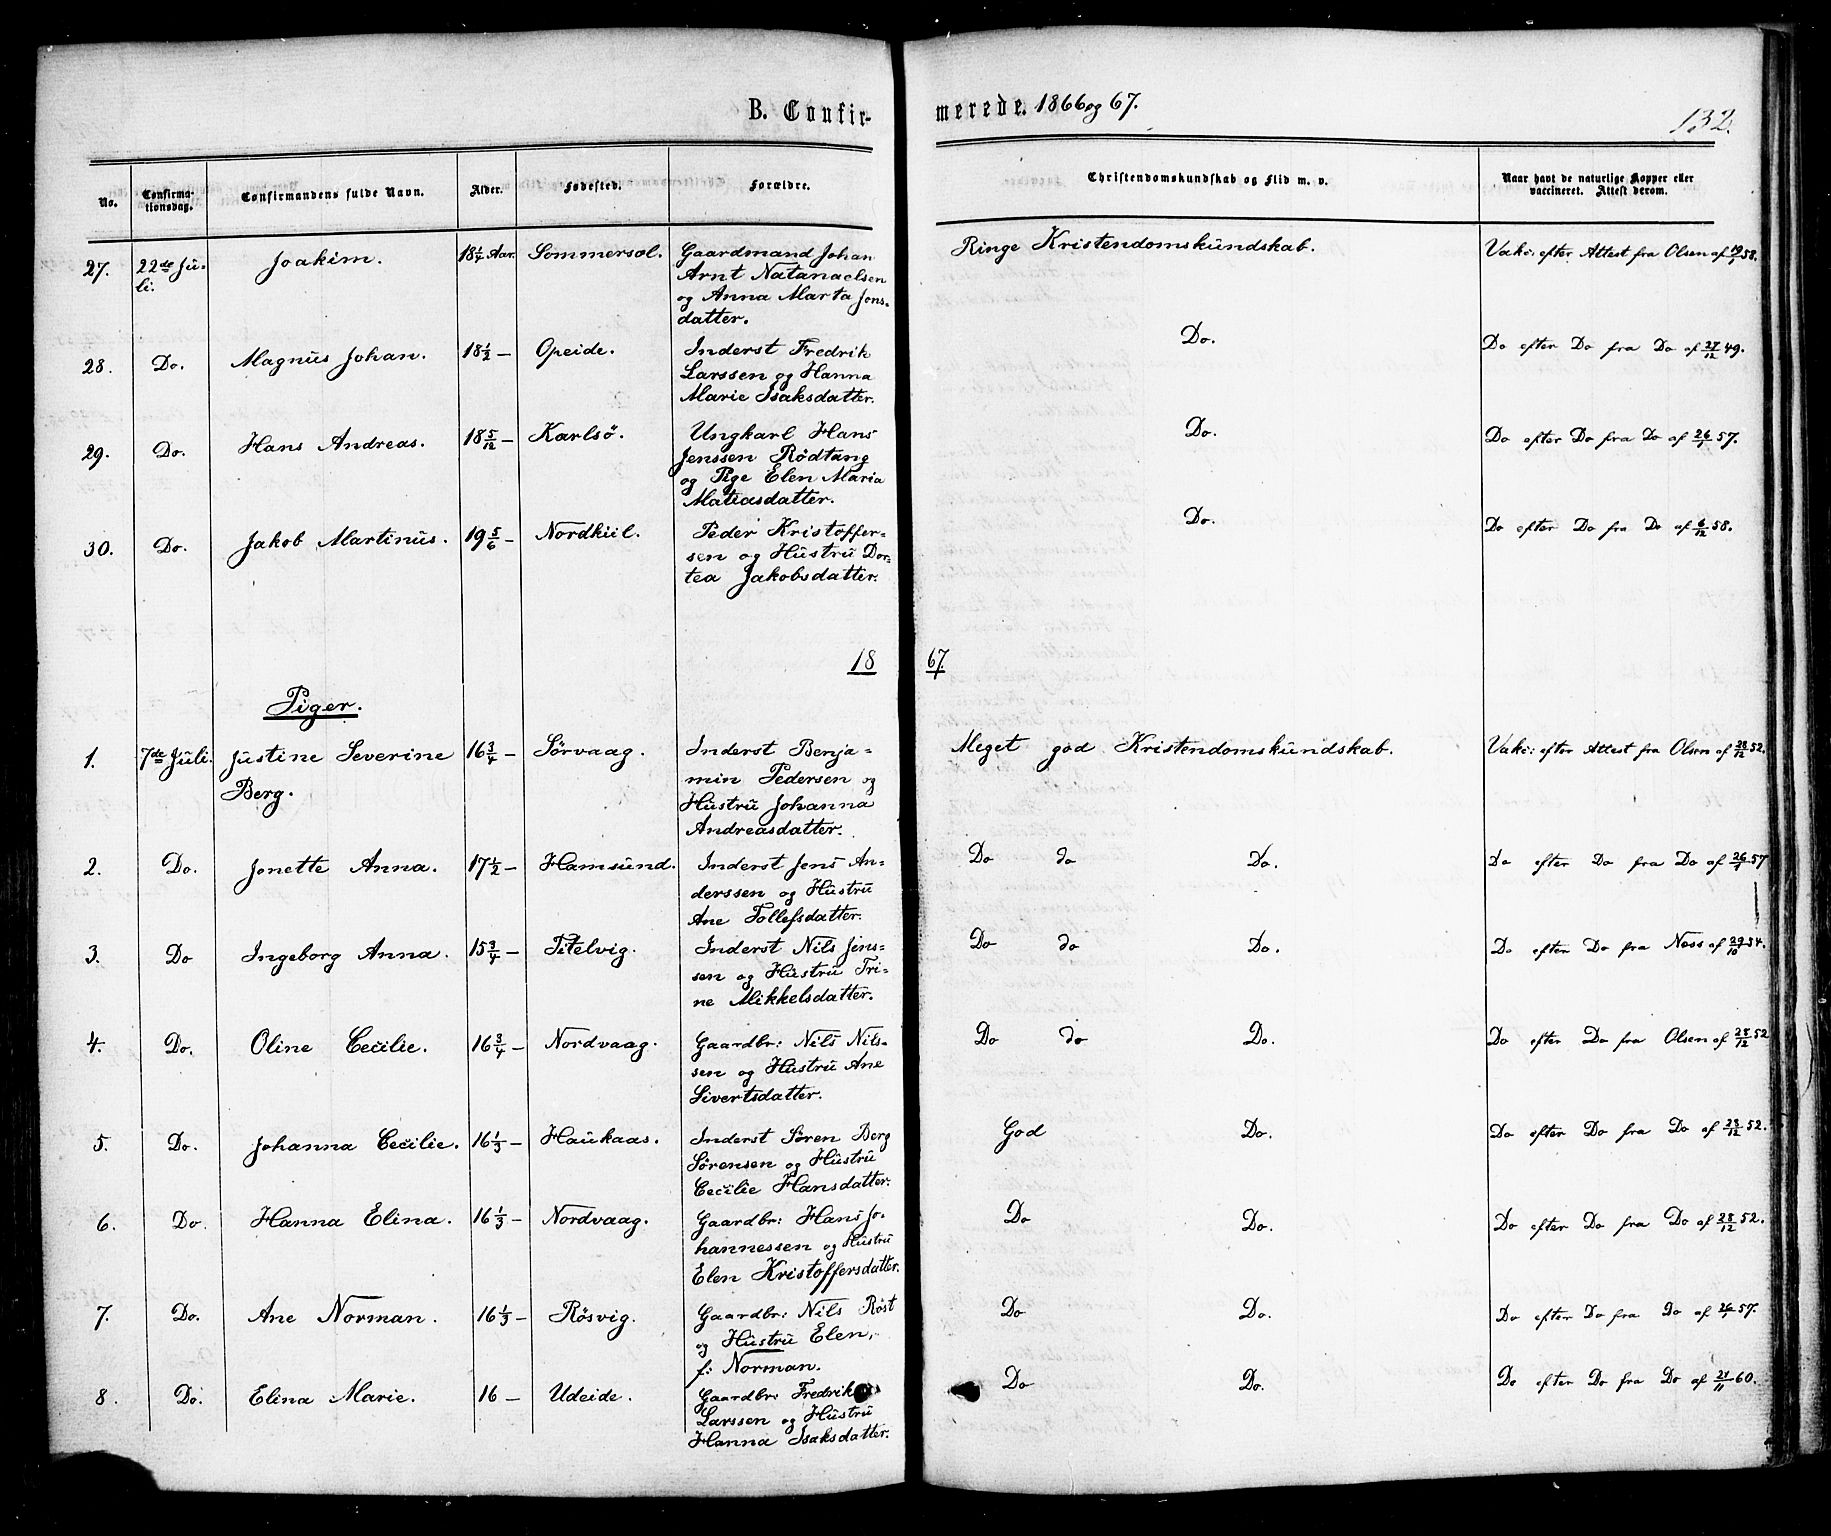 B. Confirmerede. 1866 og 67.
132.
No. Confirmationsdag. Confirmandens fulde Navn. Alder. Fødested. Forældre. Christendomskundskab og Flid m. v. Naar havt de naturlige Kopper eller vaccineret. Attest derom.
27. 22de Juli. Joakim. 18 1/4 Aar. Sommersæl. Gaardmand Johan Ringe Kristendomskundskab. Vakc: efter Attest fra Olsen af 58.
Arnt Natanaelsen
og Anna Marta Jens-
datter.
28. Do. Magnus Johan. 18 1/2 — Opeide. Inderst Fredrik Do. Do efter Do fra Do af 27/12 49.
Larssen og Hanna
Marie Isaksdatter.
29. Do. Hans Andreas. 18 5/12 — Karlsö. Ungkarl Hans Do. Do efter Do fra Do af 26/1 57.
Jenssen Rödtang
og Pige Elen Maria
Matiasdatter.
30. Do. Jakob Martinus. 19 5/6 — Nordkiil. Peder Kristoffer- Do. Do efter Do fra Do af 6/12 58.
sen og Hustru Dor-
tea Jakobsdatter.
1867.
Piger.
1. 7de Juli. Justine Severine 16 3/4 — Sørvaag. Inderst Benja- Meget god Kristendomskundskab. Vakc: efter Attest fra Olsen af 28/12 52.
Berg. min Pedersen og
Hustru Johanna
Andreasdatter.
2. Do. Jonette Anna. 17 1/2 — Hamsund. Inderst Jens An- Do do Do. Do efter Do fra Do af 26/1 57
derssen og Hustru
Ane Tollefsdatter.
3. Do Ingeborg Anna. 15 3/4 — Tetelvig. Inderst Nils Jens- Do do Do. Do efter Do fra Ness af 29/10 54.
sen og Hustru Tri-
ne Mikkelsdatter.
4. Do. Oline Cecilie. 16 3/4 — Nordvaag. Gaardbr: Nils Nils- Do do Do. Do efter Do fra Olsen af 28/12 52
sen og Hustru Ane
Sivertsdatter.
5. Do. Johanna Cecilie. 16 1/3 — Haukaas. Inderst Søren Berg God Do. Do efter Do fra Do af 28/12 52.
Sørensen og Hustru
Cecilie Hansdatter.
6. Do. Hanna Elina. 16 1/3 — Nordvaag. Gaardbr: Hans Jo- Do Do. Do efter Do fra Do af 28/12 52.
hannessen og Hustru
Elen Kristoffersdatter.
7. Do. Ane Norman. 16 1/3 — Røsvig. Gaardbr: Nils Røst Do Do. Do efter Do fra Do af 26/1 57.
og Hustru Elen,
f: Norman.
8. Do. Elina Marie. 16 — Udeide. Gaardbr: Fredrik Do Do. Do efter Do fra Do af 21/11 60.
Larssen og Hustru
Hanna Isaksdatter.